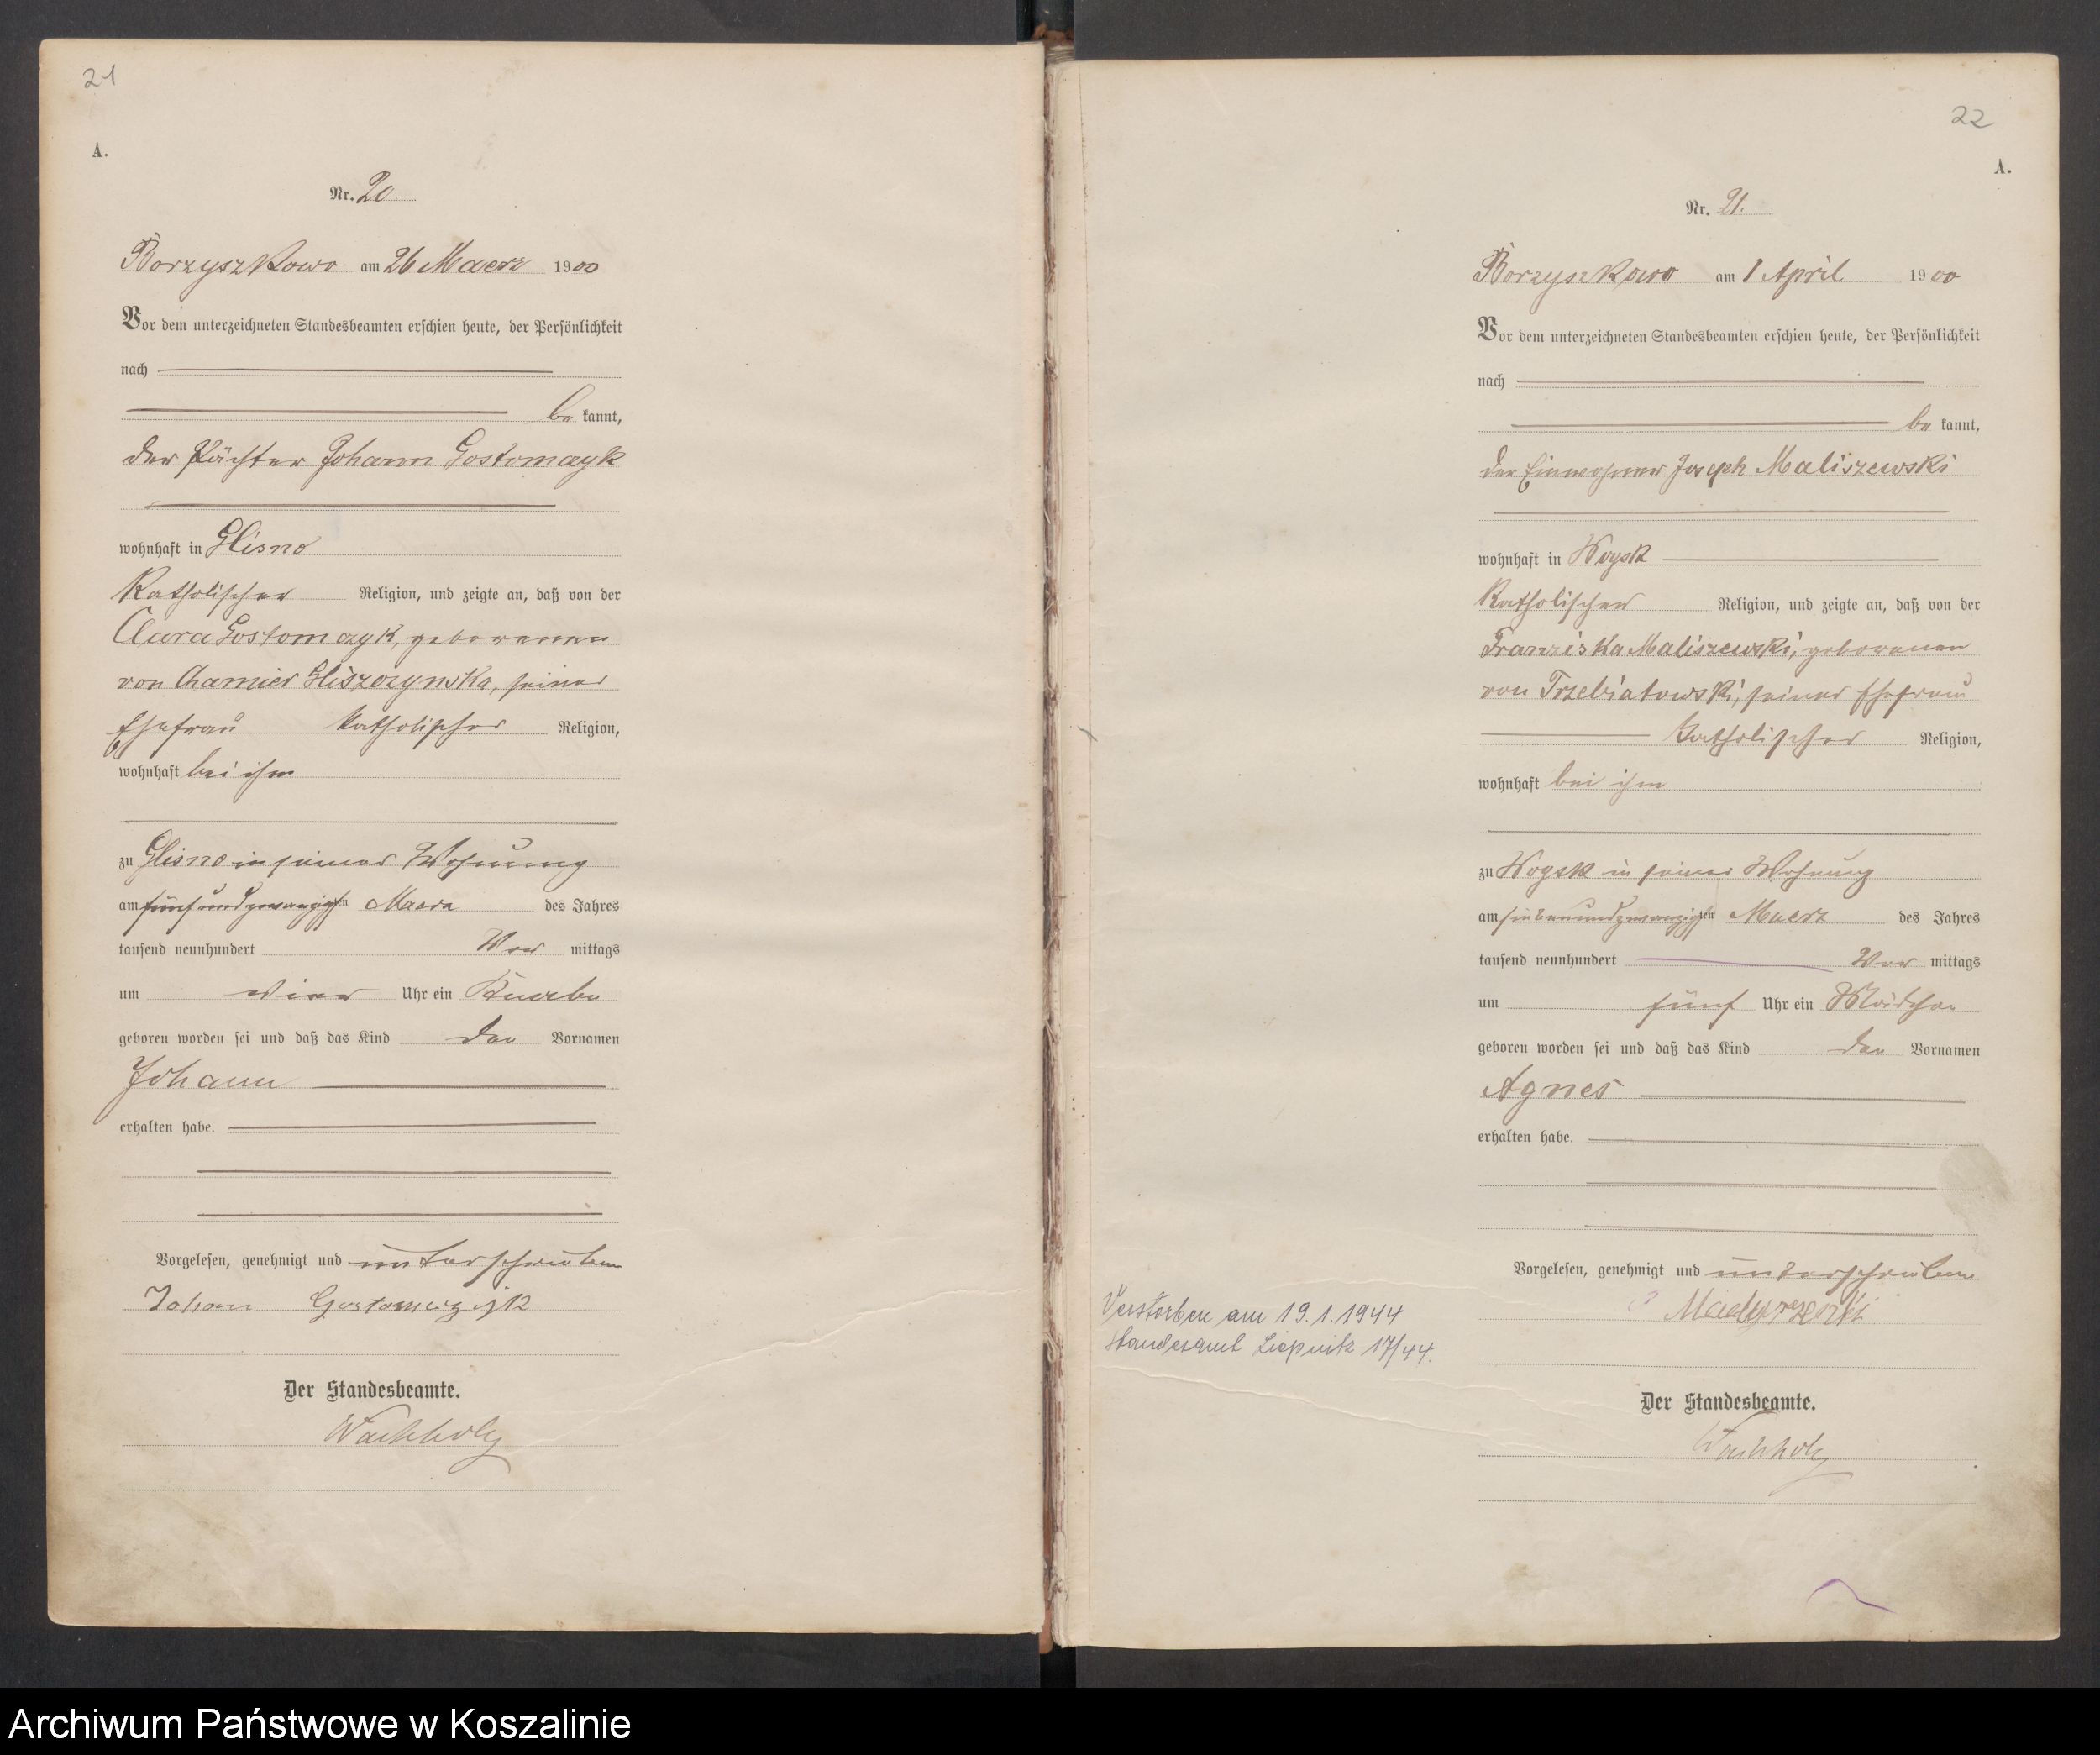 21
A.
Nr. 20
Borzyszkowo am 26 Maerz 1900
Vor dem unterzeichneten Standesbeamten erschien heute, der Persönlichkeit
nach
be kannt,
der Pächter Johann Gostomczyk
wohnhaft in Glisno
katholischer Religion, und zeigte an, daß von der
Clara Gostomczyk, geborenen
von Chamier Gliszczynska, seiner
Ehefrau katholischer Religion,
wohnhaft bei ihm
zu Glisno in seiner Wohnung
am fünfundzwanzigsten Maerz des Jahres
tausend neunhundert Vor mittags
um vier Uhr ein Knabe
geboren worden sei und daß das Kind den Vornamen
Johann
erhalten habe.
Vorgelesen, genehmigt und unterschrieben
Johan Gostomczyk
Der Standesbeamte.
Wachholz
22
A.
Nr. 21.
Borzyszkowo am 1 April 1900
Vor dem unterzeichneten Standesbeamten erschien heute, der Persönlichkeit
nach
be kannt,
der Einwohner Joseph Maliszewski
wohnhaft in Wogsk
katholischer Religion, und zeigte an, daß von der
Franziska Maliszewski, geborenen
von Trzebiatowski, seiner Ehefrau
katholischer Religion,
wohnhaft bei ihm
zu Wogsk in seiner Wohnung
am siebenundzwanzigsten Maerz des Jahres
tausend neunhundert Vor mittags
um fünf Uhr ein Mädchen
geboren worden sei und daß das Kind den Vornamen
Agnes
erhalten habe.
Vorgelesen, genehmigt und unterschrieben
Der Standesbeamte.
Wachholz
Verstorben am 19.1.1944
Standesamt Liepnitz 17/44.
Archiwum Państwowe w Koszalinie